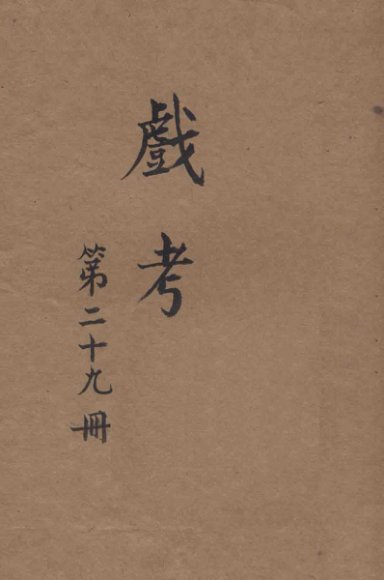 戲考
第二十九冊